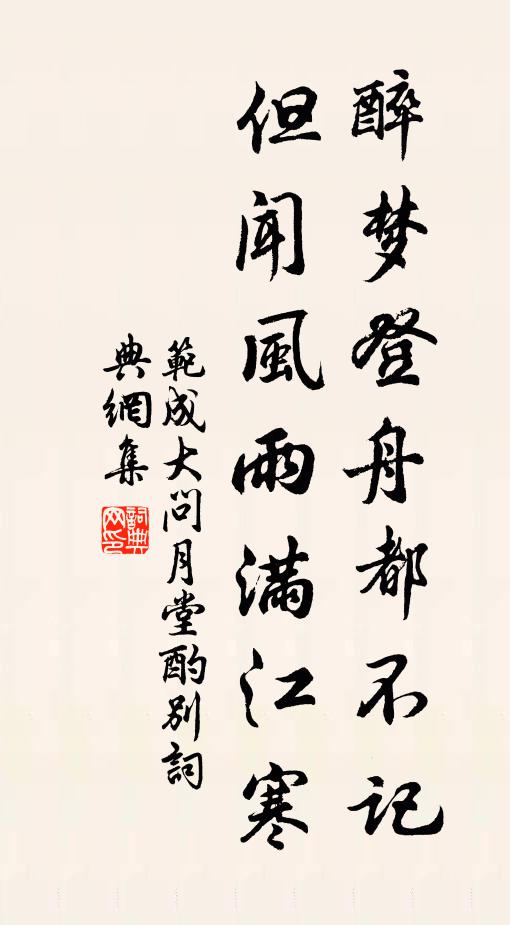 醉梦登舟都不記
但闻風雨滿江寒
範成大問月堂酌别詞
典網集
詞典网印